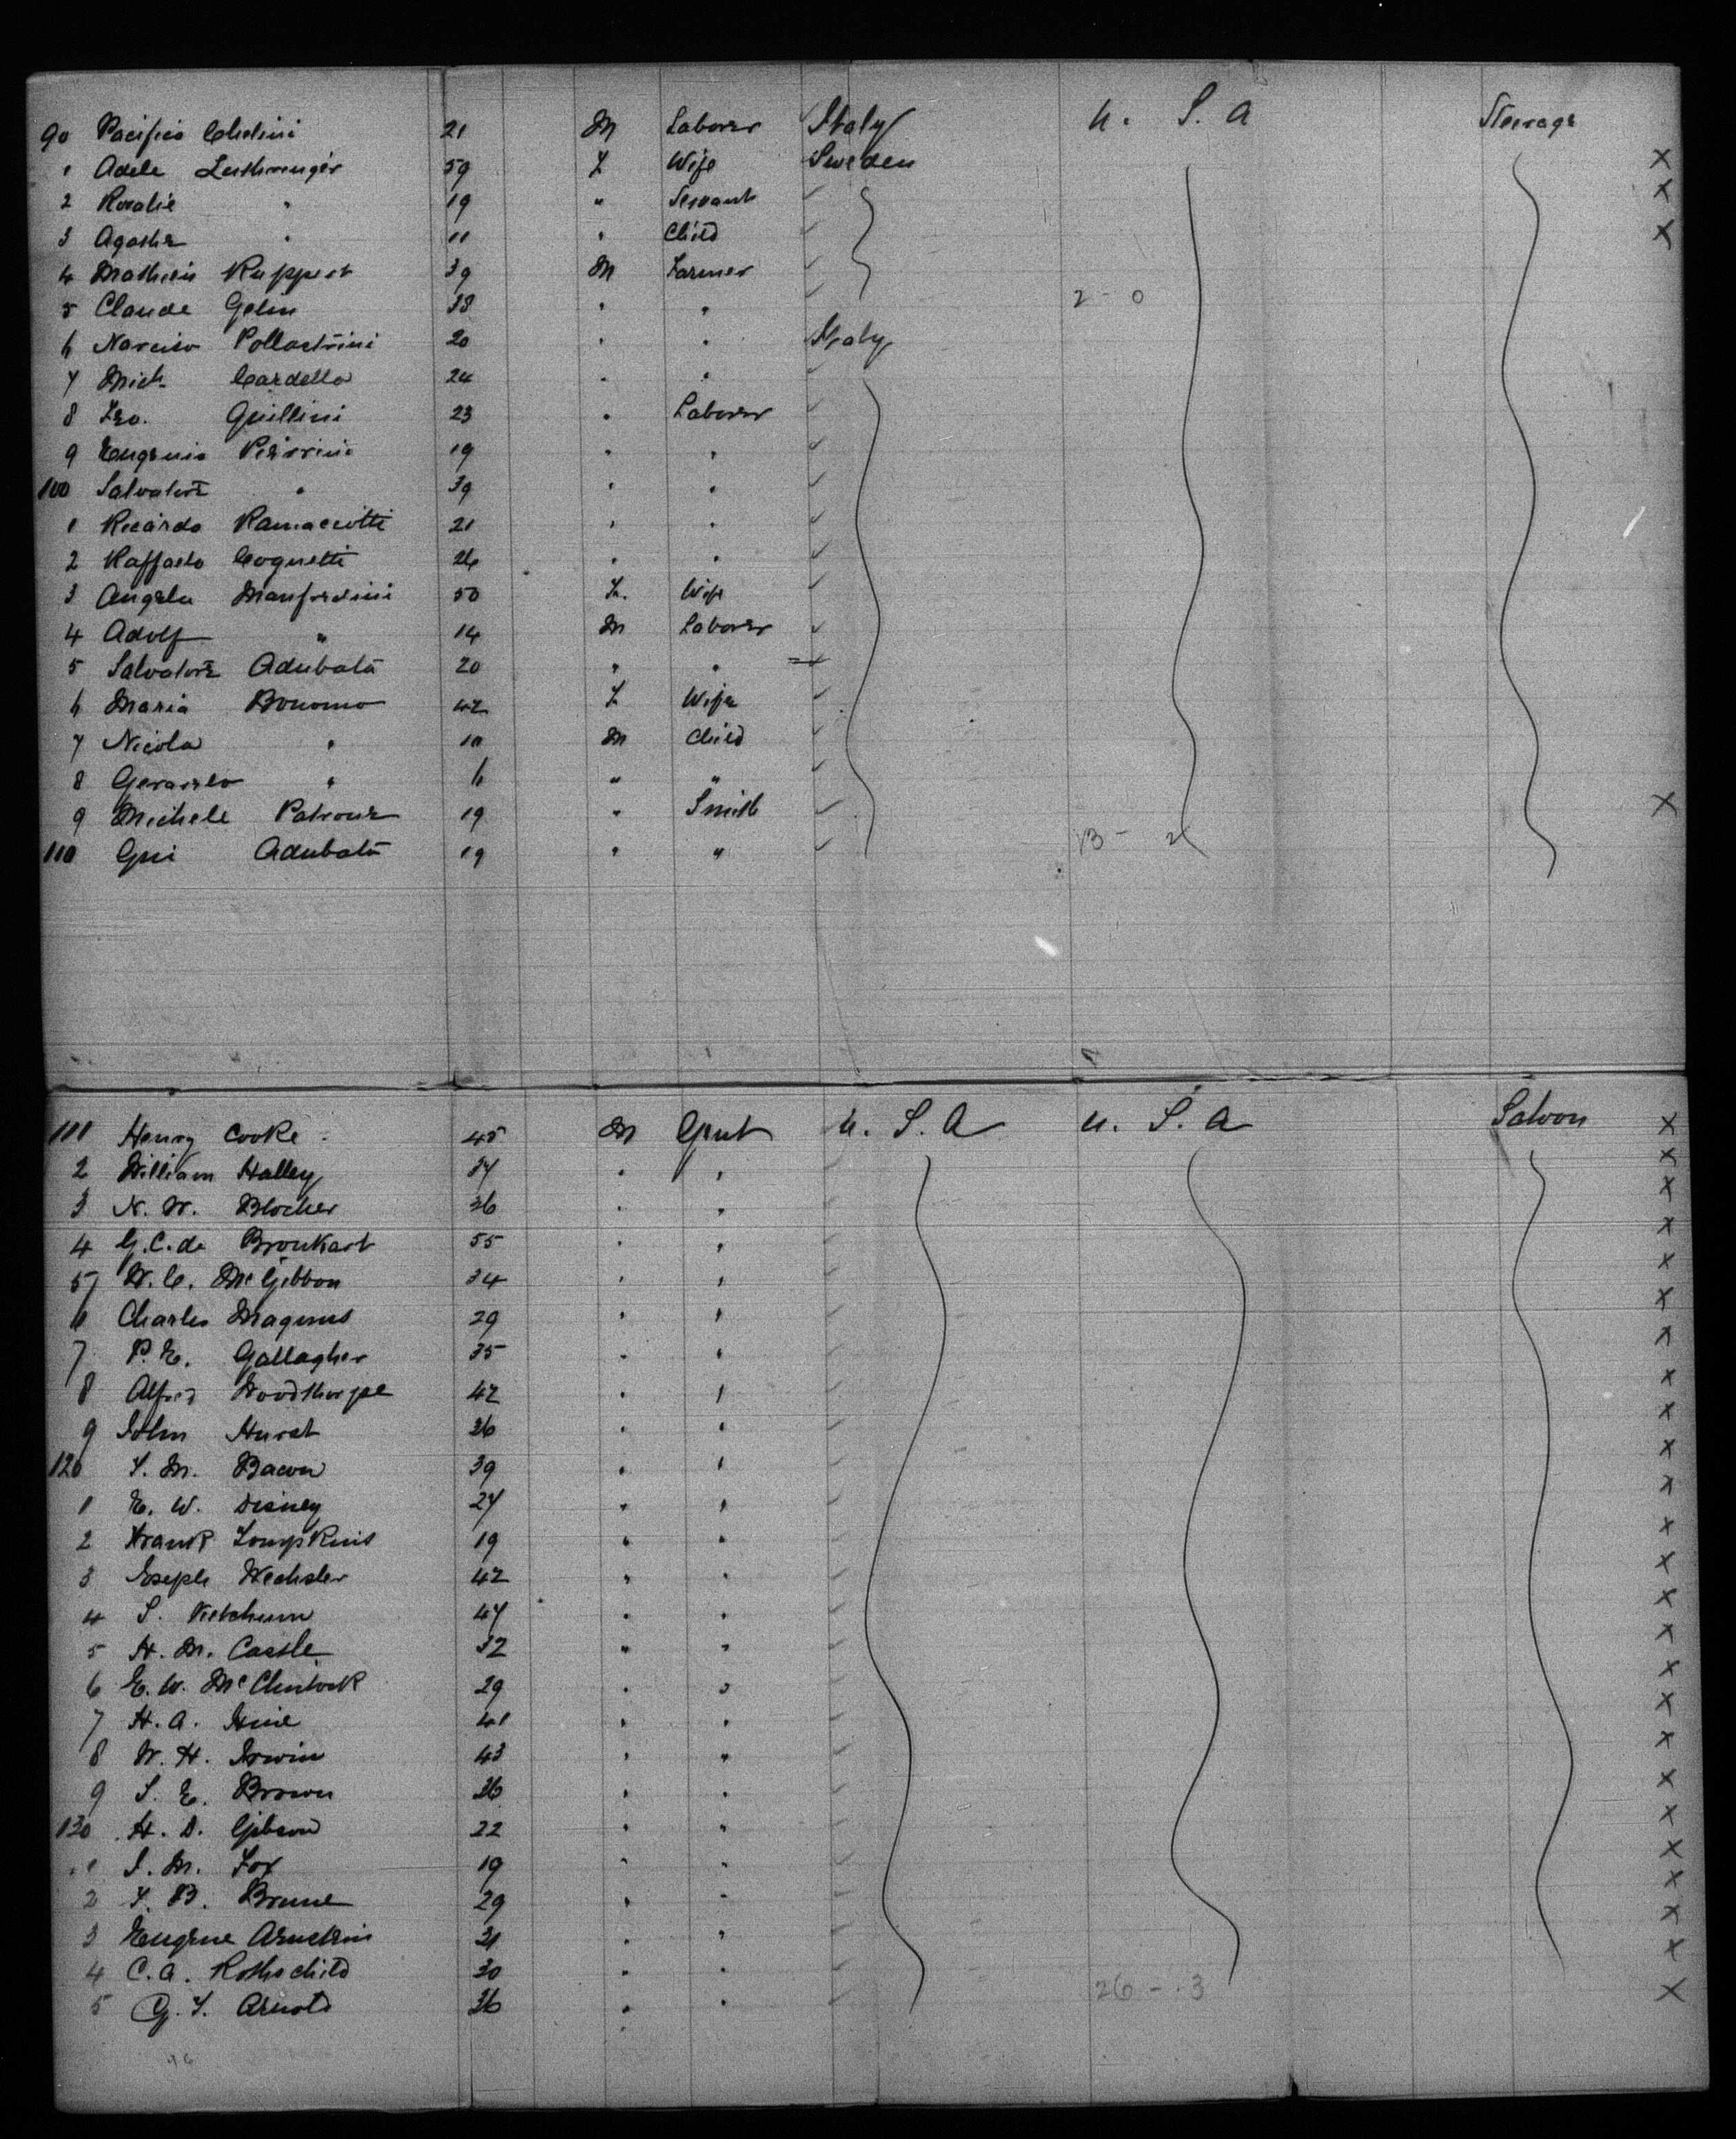 90 Pacifico Chelini 21 M Laborer Italy U. S. A Steerage
1 Adele 59 F Wife Sweden X
2 Rosalie " 19 " Servant X
3 Agathe " 11 " Child X
4 Mathieu Ruppert 39 M Farmer
5 Claude Gelin 38 " " 2 - 0
6 Narciso Pollastrini 20 " " Italy
7 Mich. Cardella 24 " "
8 Fro. Guillini 23 " Laborer
9 Eugenio Pierrini 19 " "
100 Salvatore " 39 " "
1 Ricardo Ramacciotti 21 " "
2 Raffaelo Coguetti 26 " "
3 Angela Manfredini 50 F. Wife
4 Adolf " 14 M Laborer
5 Salvatore Adubata 20 " "
6 Maria Bonomo 42 F Wife
7 Nicola " 10 M Child
8 " 6 " "
9 Michele Patrone 19 " Smith X
110 Gui Adubata 19 " " 13 - 2
111 Henry Cooke 45 M Gent U. S. A U. S. A Saloon X
2 William Halley 37 " " X
3 N. W. Blocher 36 " " X
4 G. C. de Bronkart 55 " " X
5 W. C. McGibbon 34 " " X
6 Charles Magnus 29 " " X
7 P. E. Gallagher 35 " " X
8 Alfred Woodthorpe 42 " " X
9 John Hurst 26 " " X
120 F. M. Bacon 39 " " X
1 E. W. Disney 27 " " X
2 Frank Tompkins 19 " " X
3 Joseph Wechsler 42 " " X
4 S. Ketchum 47 " " X
5 H. M. Castle 32 " " X
6 E. W. McClintock 29 " " X
7 H. A. Hine 41 " " X
8 W. H. Irwin 43 " " X
9 S. E. Brown 26 " " X
130 H. D. Gibson 22 " " X
1 J. M. Fox 19 " " X
2 F. B. Brune 29 " " X
3 Eugene 31 " " X
4 C. A. Rothschild 30 " " X
5 G. F. Arnold 36 " " 26 - 3 X